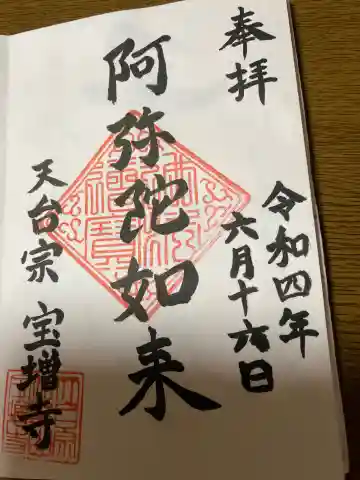 奉拝
令和四年
六月十六日
阿弥陀如来
天台宗 宝増寺